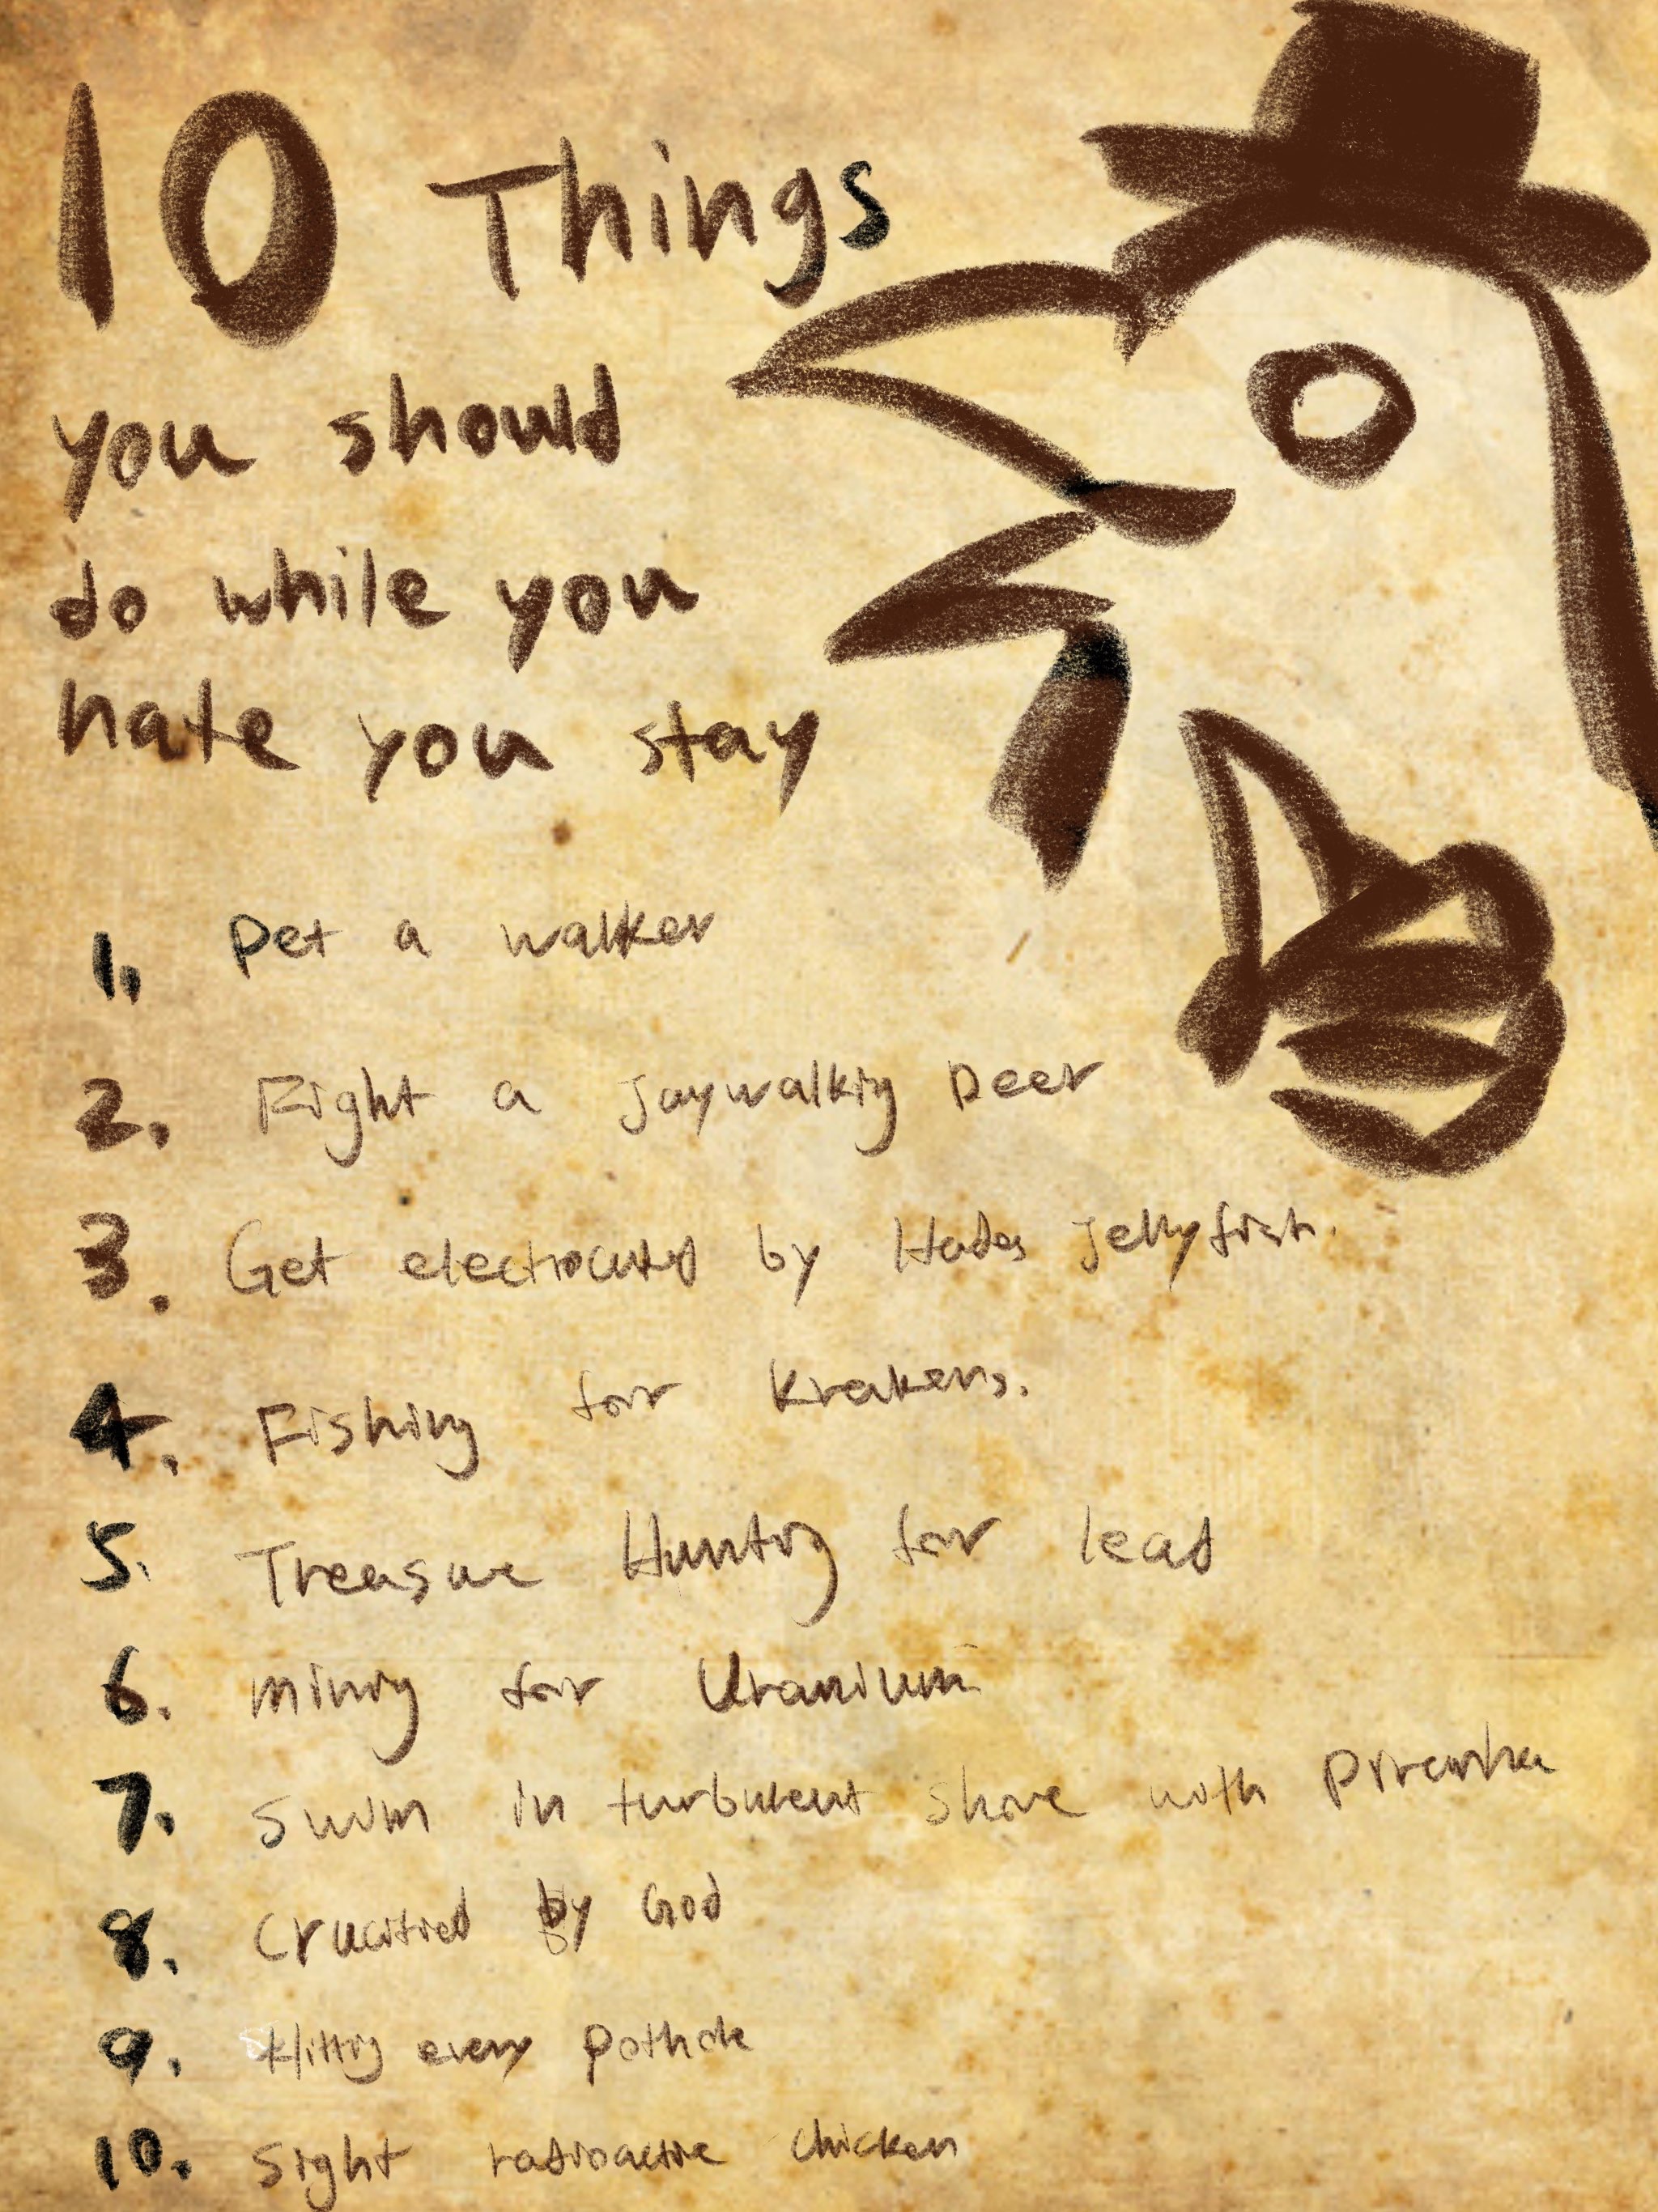 10 Things
you should
do while you
hate you stay
1. Pet a walker
2. Fight a Jaywalkig Deer
3. Get electrocuted by Hades Jellyfish.
4. Fishing for Krakens.
5. Treasure Huntig for lead
6. minig for Uranium
7. Swim in turbulent shore with Piranha
8. Crucified by God
9. Hittig every Pothole
10. Sight radioactive chicken